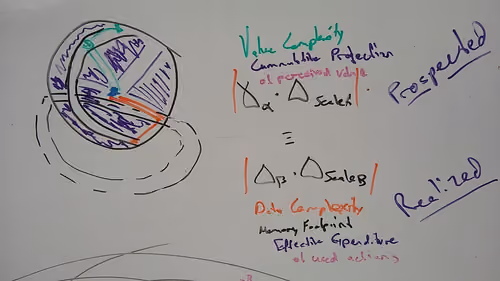 Value Complexity
Cummulative Projection
of percieved value
Prospected
| Δα · Δ Scaleα | .
≡
| ΔB · Δ ScaleB |
Realized
Data Complexity
Memory Footprint
Effective Expenditure
of used actions